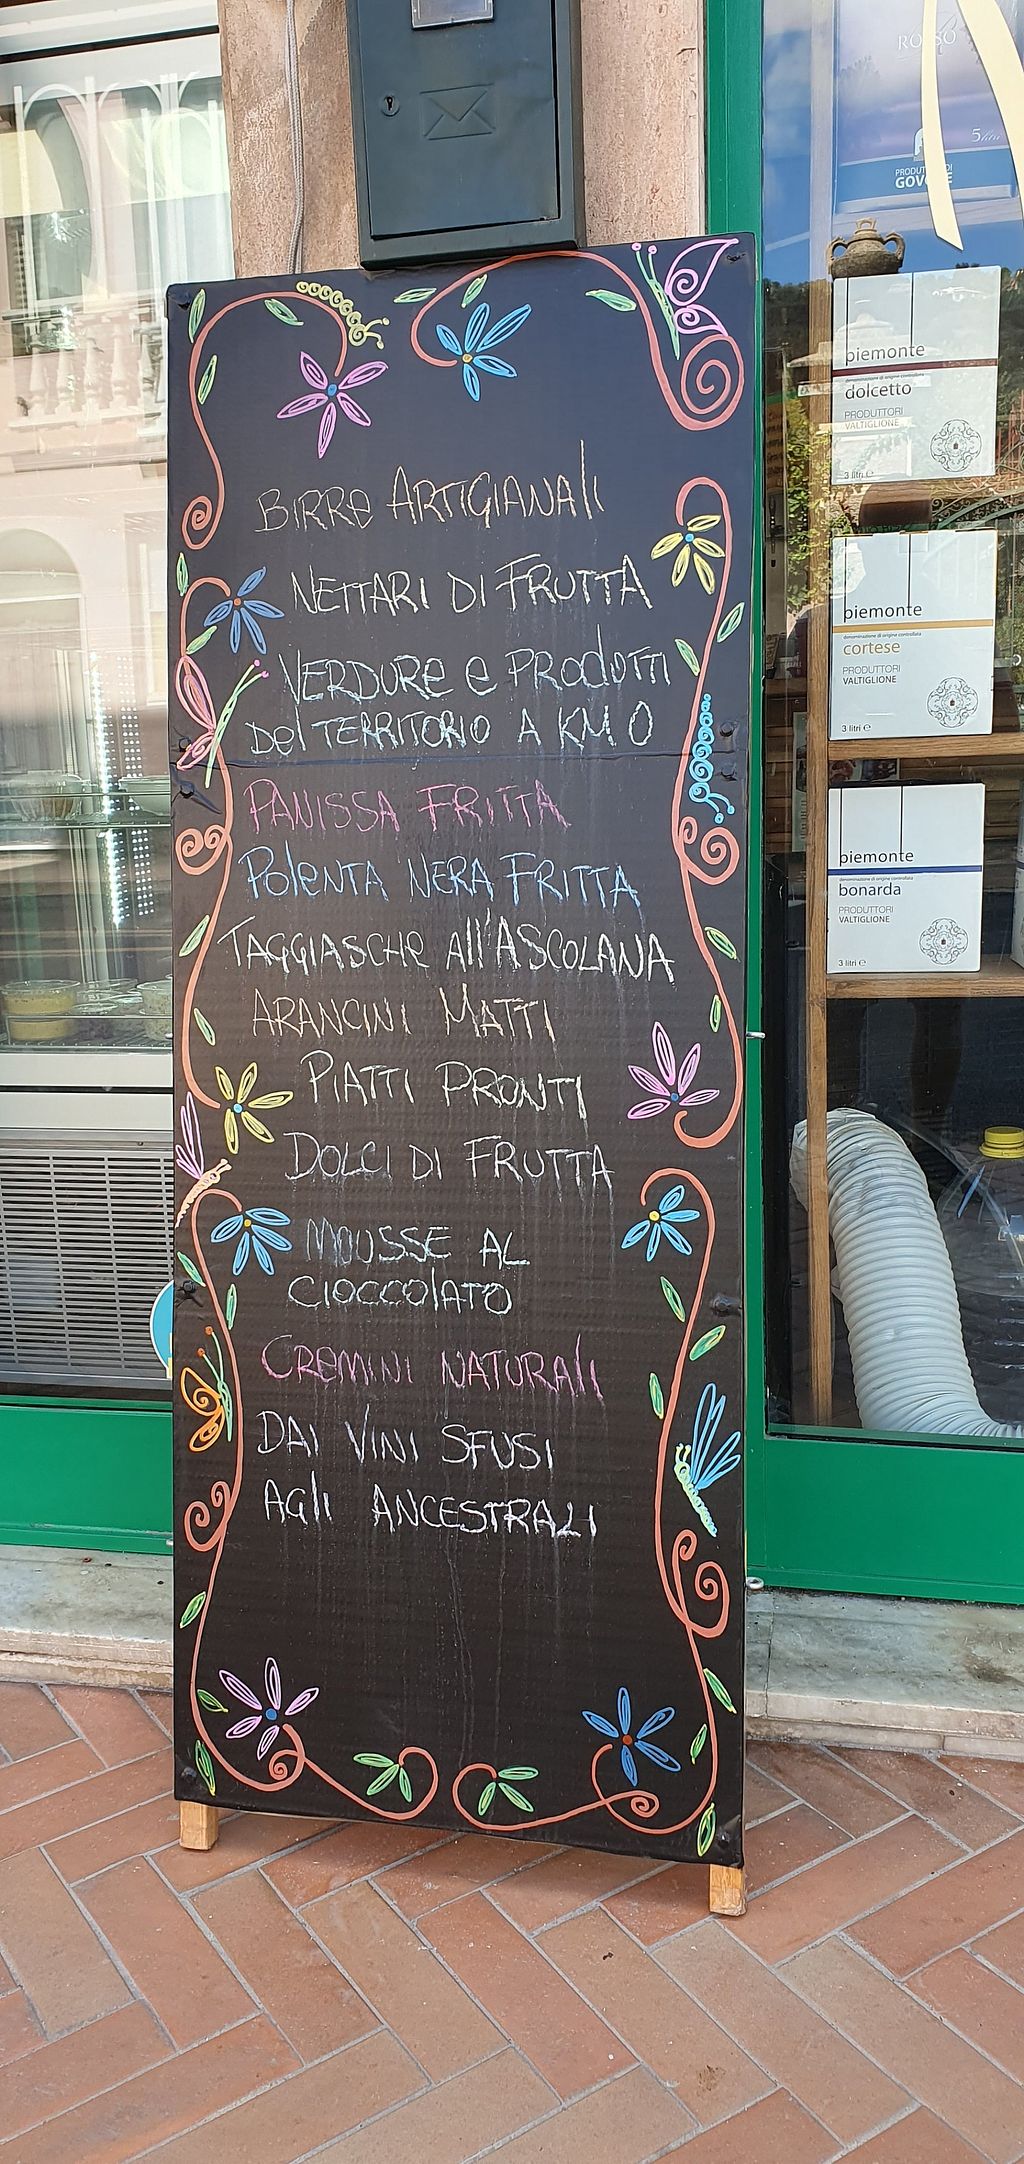 BIRRe ARTIGIANAli
NETTARI DI FRUTTA
VERDURe e PRODOTTI
Del TERRITORIO A KM 0
PANISSA FRITTA
POleNTA NERA FRITTA
TAGGIASCHe All'ASCOLANA
ARANCINI MATTI
PIATTI PRONTI
DOLCI DI FRUTTA
MOUSSE AL
CIOCCOlATO
CReMINI NATURAli
DAI VINI SFUSI
AGli ANCESTRALI
ROSSO
PRODUTTORI DI
GOVONE
piemonte
denominazione di origine controllata
dolcetto
PRODUTTORI
VALTIGLIONE
3 litri e
piemonte
denominazione di origine controllata
cortese
PRODUTTORI
VALTIGLIONE
3 litri e
piemonte
denominazione di origine controllata
bonarda
PRODUTTORI
VALTIGLIONE
3 litri e